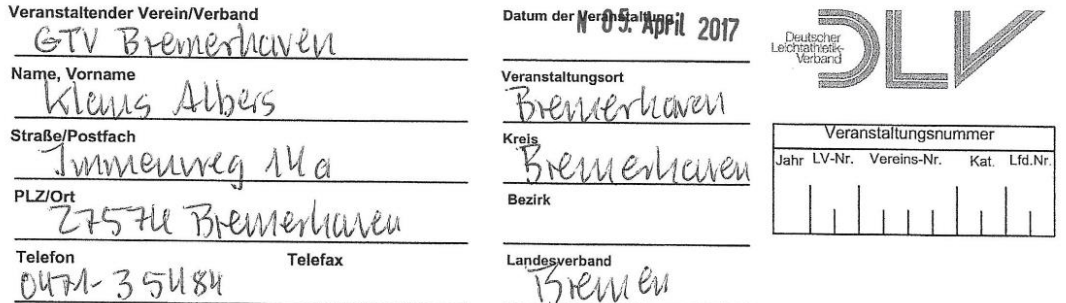 Veranstaltender Verein/Verband
GTV Bremerhaven
Name, Vorname
Klaus Albers
Straße/Postfach
Immenweg 14a
PLZ/Ort
27574 Bremerhaven
Telefon Telefax
0471-35484
Datum der Veranstaltung
05. April 2017
Veranstaltungsort
Bremerhaven
Kreis
Bremerhaven
Bezirk
Landesverband
Bremen
Deutscher
Leichtathletik-
Verband
DLV
Veranstaltungsnummer
Jahr LV-Nr. Vereins-Nr. Kat. Lfd.Nr.